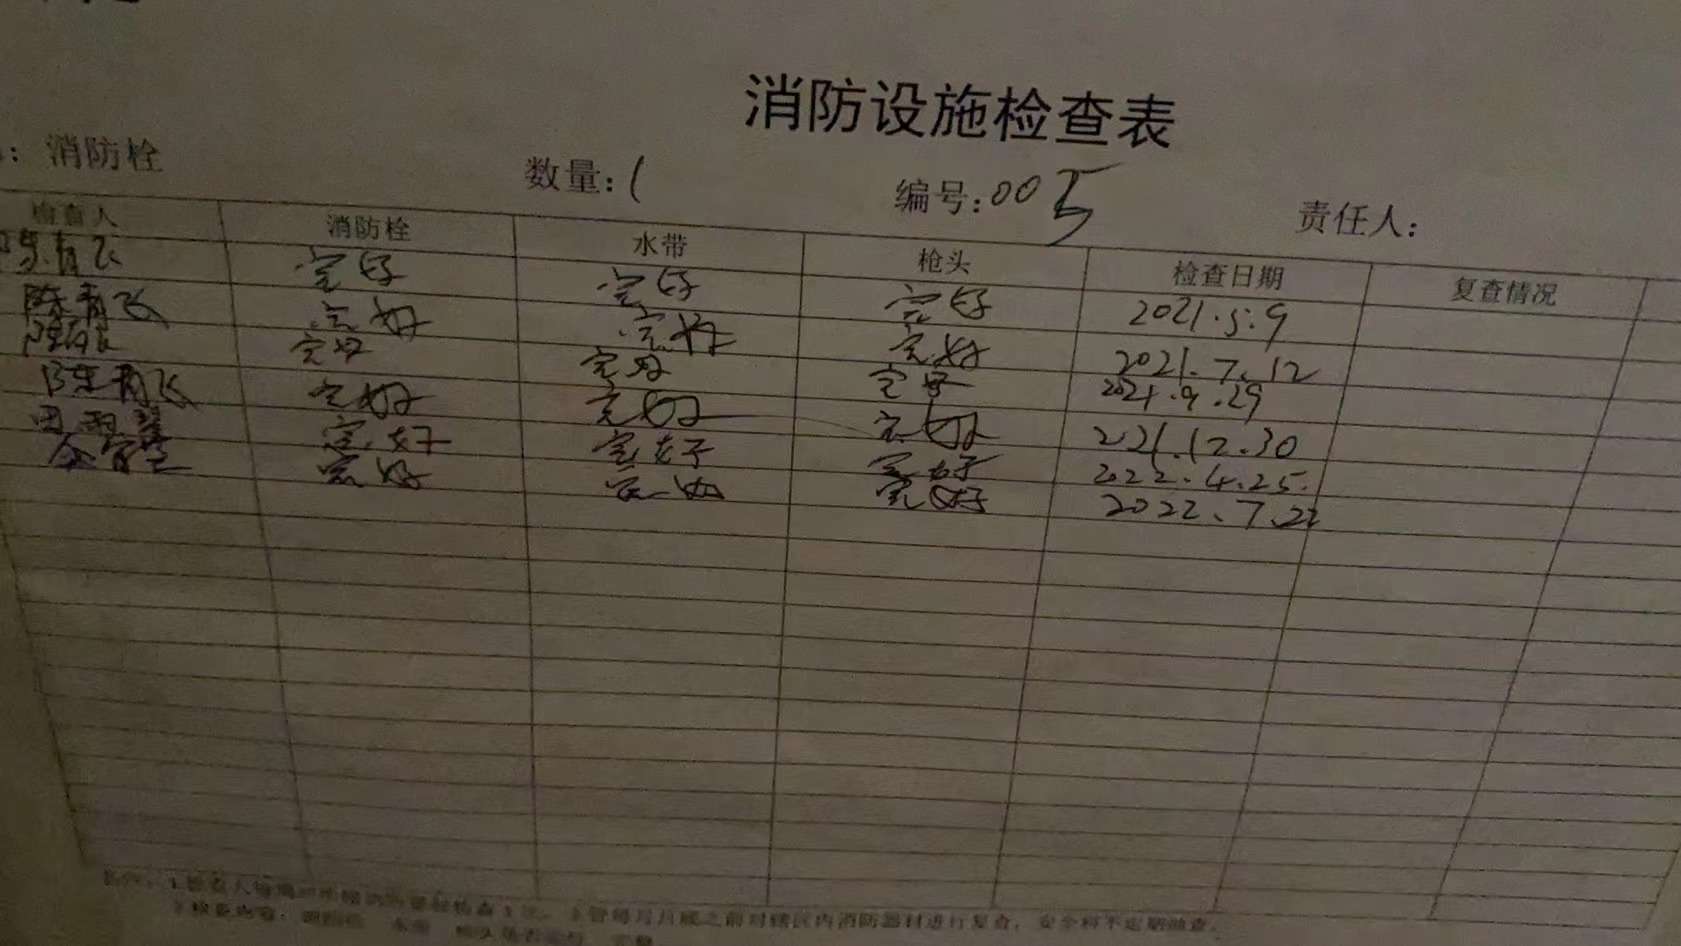 消防设施检查表
：消防栓 数量：1 编号：005 责任人：
检查人 消防栓 水带 枪头 检查日期 复查情况
陈青飞 完好 完好 完好 2021.5.9
陈青飞 完好 完好 完好 2021.7.12
完好 完好 完好 2021.9.29
陈青飞 完好 完好 完好 2021.12.30
完好 完好 完好 2022.4.25.
完好 完好 完好 2022.7.22
月底之前对辖区内消防器材进行复查，安全科不定期抽查。